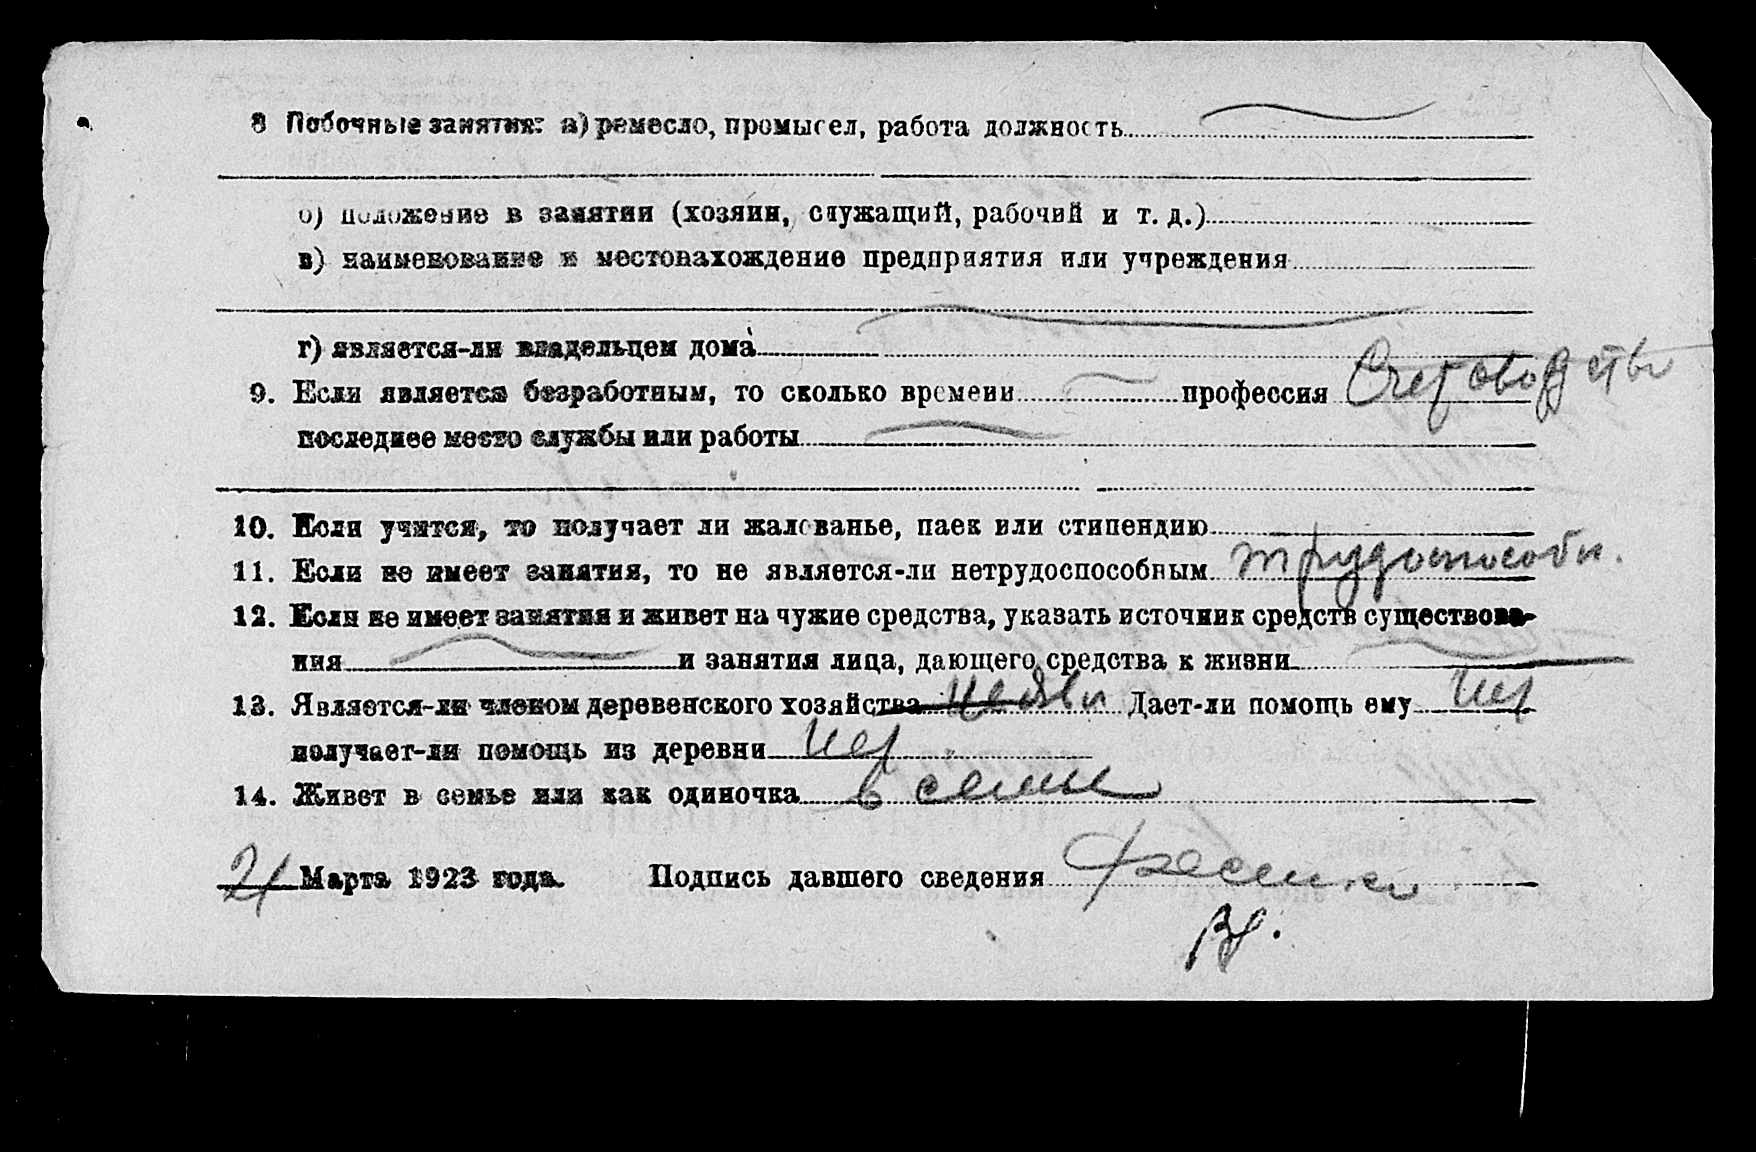 8 Побочные занятия: а) ремесло, промысел, работа должность
б) положение в занятии (хозяин, служащий, рабочий и т. д.)
в) наименование и местонахождение предприятия или учреждения
г) является-ли владельцем дома
9. Если является безработным, то сколько времени профессия Счетоводство
последнее место службы или работы
10. Если учится, то получает ли жалованье, паек или стипендию
11. Если не имеет занятия, то не является-ли нетрудоспособным трудоспособн.
12. Если не имеет занятия и живет на чужие средства, указать источник средств существова-
ния и занятия лица, дающего средства к жизни
13. Является-ли членом деревенского хозяйства Дает-ли помощь ему Нет
получает-ли помощь из деревни Нет
14. Живет в семье или как одиночка в семье
21 Марта 1923 года. Подпись давшего сведения